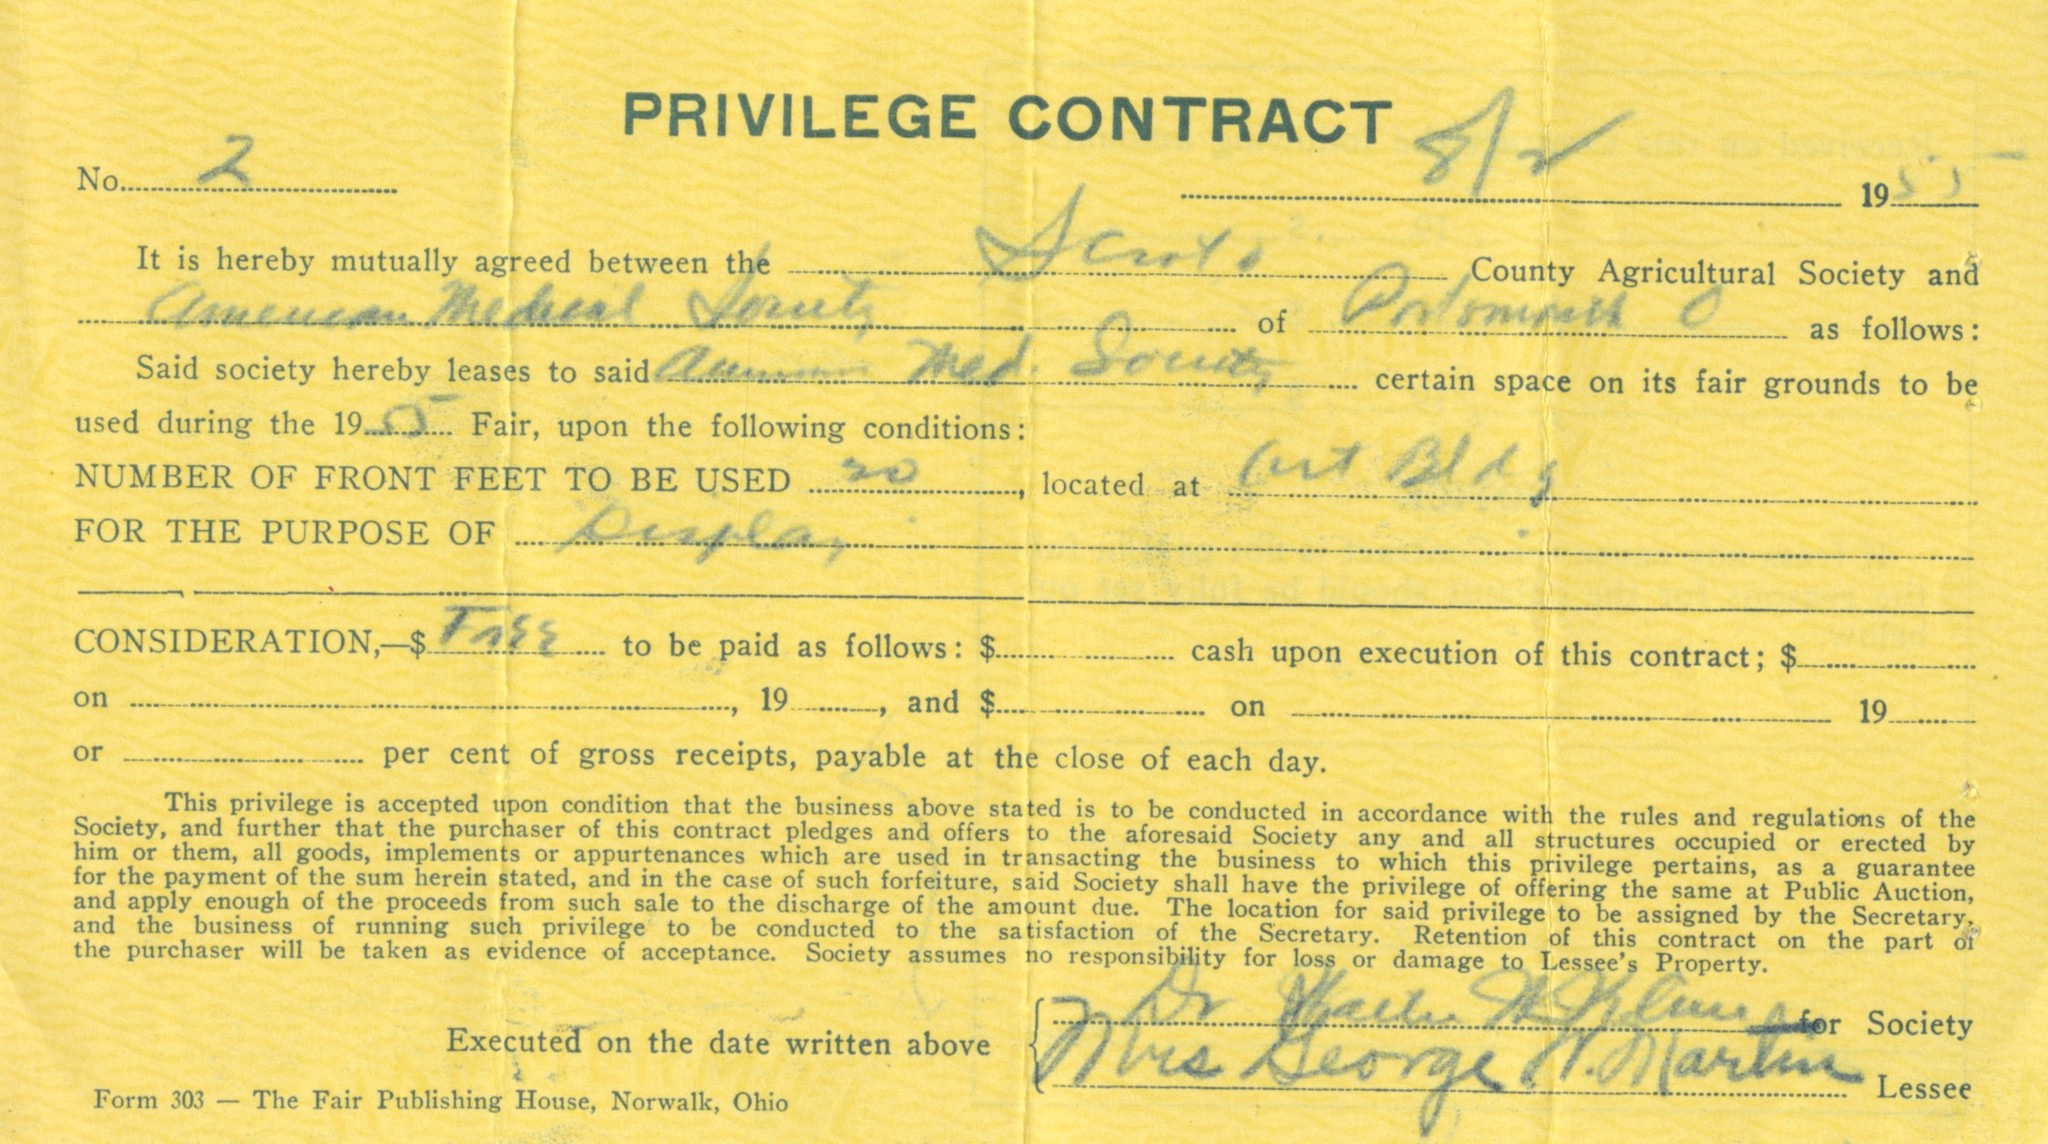 PRIVILEGE CONTRACT
No. 2 8/2 1955
It is hereby mutually agreed between the Scioto County Agricultural Society and
American Medical Society of Portsmouth O as follows:
Said society hereby leases to said American Med. Society certain space on its fair grounds to be
used during the 1955 Fair, upon the following conditions:
NUMBER OF FRONT FEET TO BE USED 20, located at Art Bldg
FOR THE PURPOSE OF Display
CONSIDERATION,—$ Free to be paid as follows: $ cash upon execution of this contract; $
on , 19 , and $ on 19
or per cent of gross receipts, payable at the close of each day.
This privilege is accepted upon condition that the business above stated is to be conducted in accordance with the rules and regulations of the
Society, and further that the purchaser of this contract pledges and offers to the aforesaid Society any and all structures occupied or erected by
him or them, all goods, implements or appurtenances which are used in transacting the business to which this privilege pertains, as a guarantee
for the payment of the sum herein stated, and in the case of such forfeiture, said Society shall have the privilege of offering the same at Public Auction,
and apply enough of the proceeds from such sale to the discharge of the amount due. The location for said privilege to be assigned by the Secretary,
and the business of running such privilege to be conducted to the satisfaction of the Secretary. Retention of this contract on the part of
the purchaser will be taken as evidence of acceptance. Society assumes no responsibility for loss or damage to Lessee's Property.
Dr for Society
Executed on the date written above
Mrs George W. Martin Lessee
Form 303 — The Fair Publishing House, Norwalk, Ohio